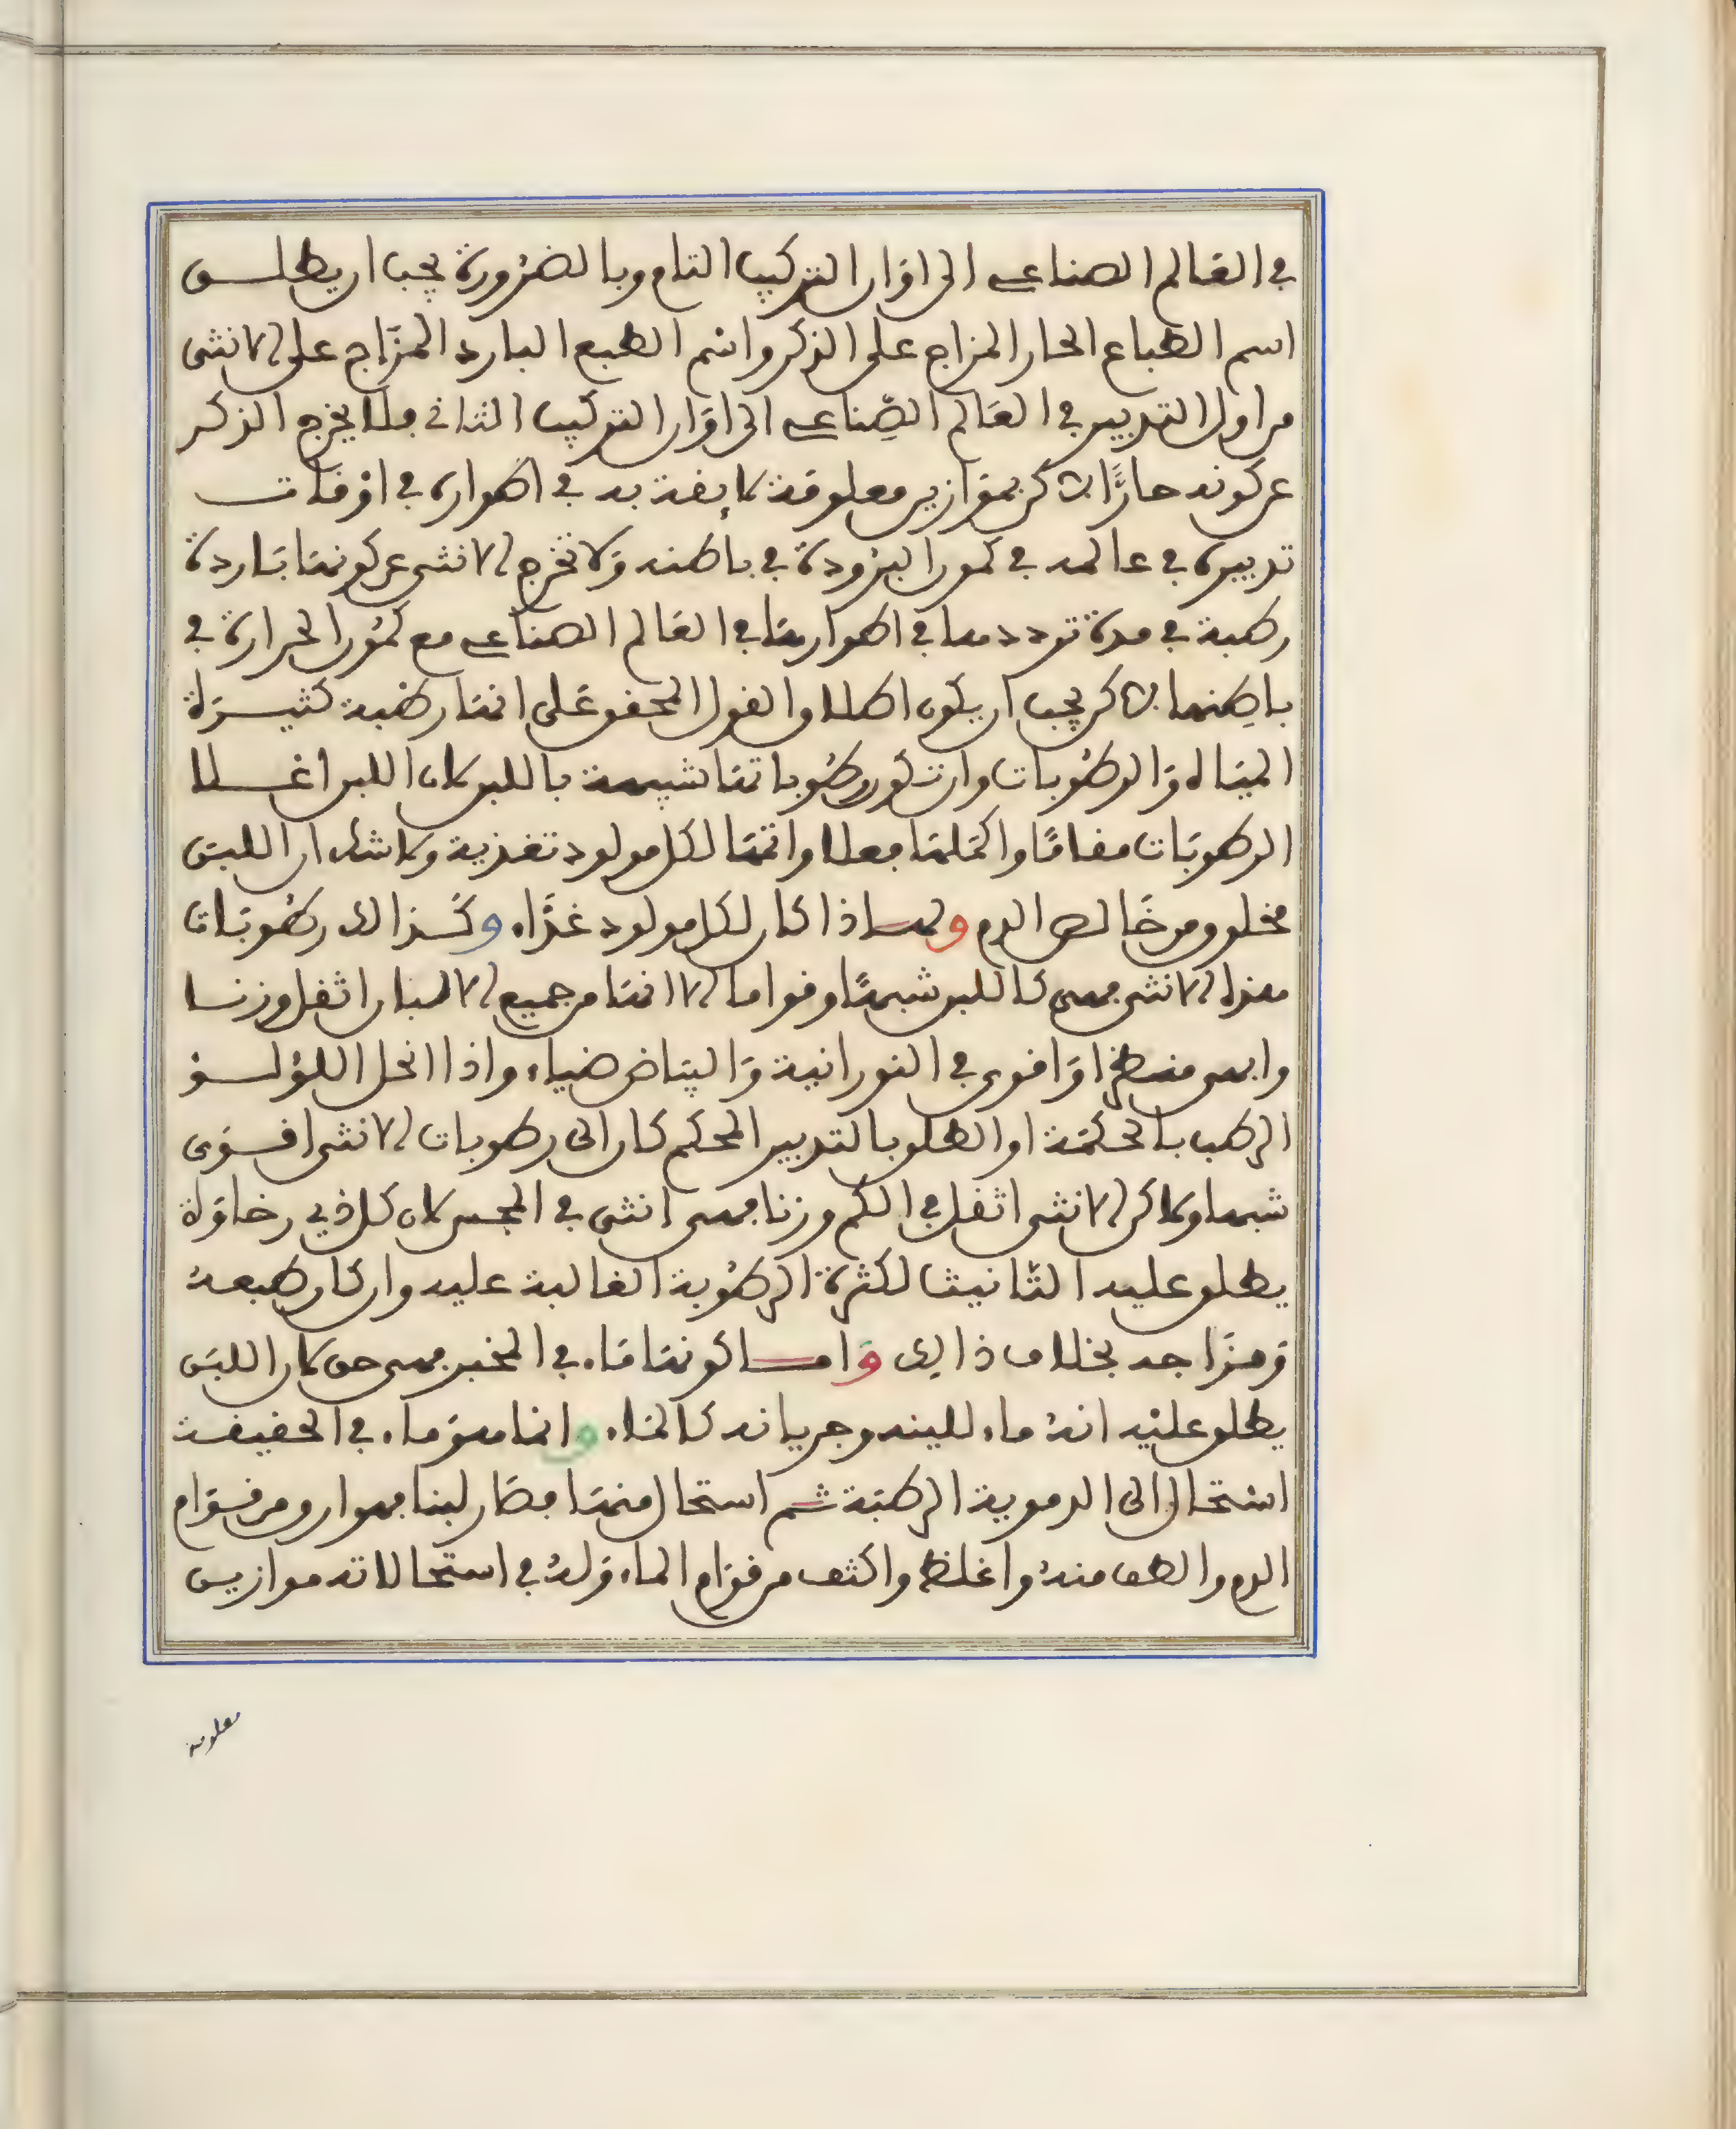 في العالم الصناعي الى اوان التركيب التام وبالضرورة يجب ان يطلق
اسم الطباع الحار المزاج على الذكر واسم الطبع البارد المزاج على الانثى
من اول التدبير في العالم الصناعي الى اوان التركيب الثاني فلا يخرج الذكر
عن كونه حارًا لاكن بموازين معلومة لايقة به في اطواره في اوقات
تدبيره في عالمه في كمون البرودة في باطنه ولا تخرج الانثى عن كونها باردة
رطبة في مدة ترددها في اطوارها في العالم الصناعي مع كمون الحرارة في
باطنها لاكن يجب ان يكون اطلاق القول المحقق على انها رطبة كثيرة
المياه والرطوبات وان تكون رطوباتها شبيهة باللبن لان اللبن اغلا
الرطوبات مقامًا واكملها فعلا واتمها لكل مولود تغذية ولا شك ان اللبن
مخلوق من خالص الدم ولهاذا كان لكل مولود غذاء وكذالك رطوبات
هذه الانثى فهي كاللبن شبهًا وقواما الا انها من جميع الالبان اثقل وزنا
وابهى منظرا واقوى في النورانية والبياض ضياء واذا انحل اللؤلؤ
الرطب بالحكمة او الطلق بالتدبير المحكم كان الى رطوبات الانثى اقوى
شبها ولاكن الانثى اثقل في الكم وزنا فهي انثى في المجس لان كل ذي رخاوة
يطلق عليه التانيث لكثرة الرطوبة الغالبة عليه وان كان طبعه
ومزاجه بخلاف ذالك واما كونها ماء في المخبر فهي حق لان اللبن
يطلق عليه انه ماء للينه وجريانه كالماء وانما هو ماء في الحقيقة
استحال الى الدموية الرطبة ثم استحال منها فصار لبنا فهو ارق من قوام
الدم والطف منه واغلظ واكثف من قوام الماء وله في استحالاته موازين
معلومة